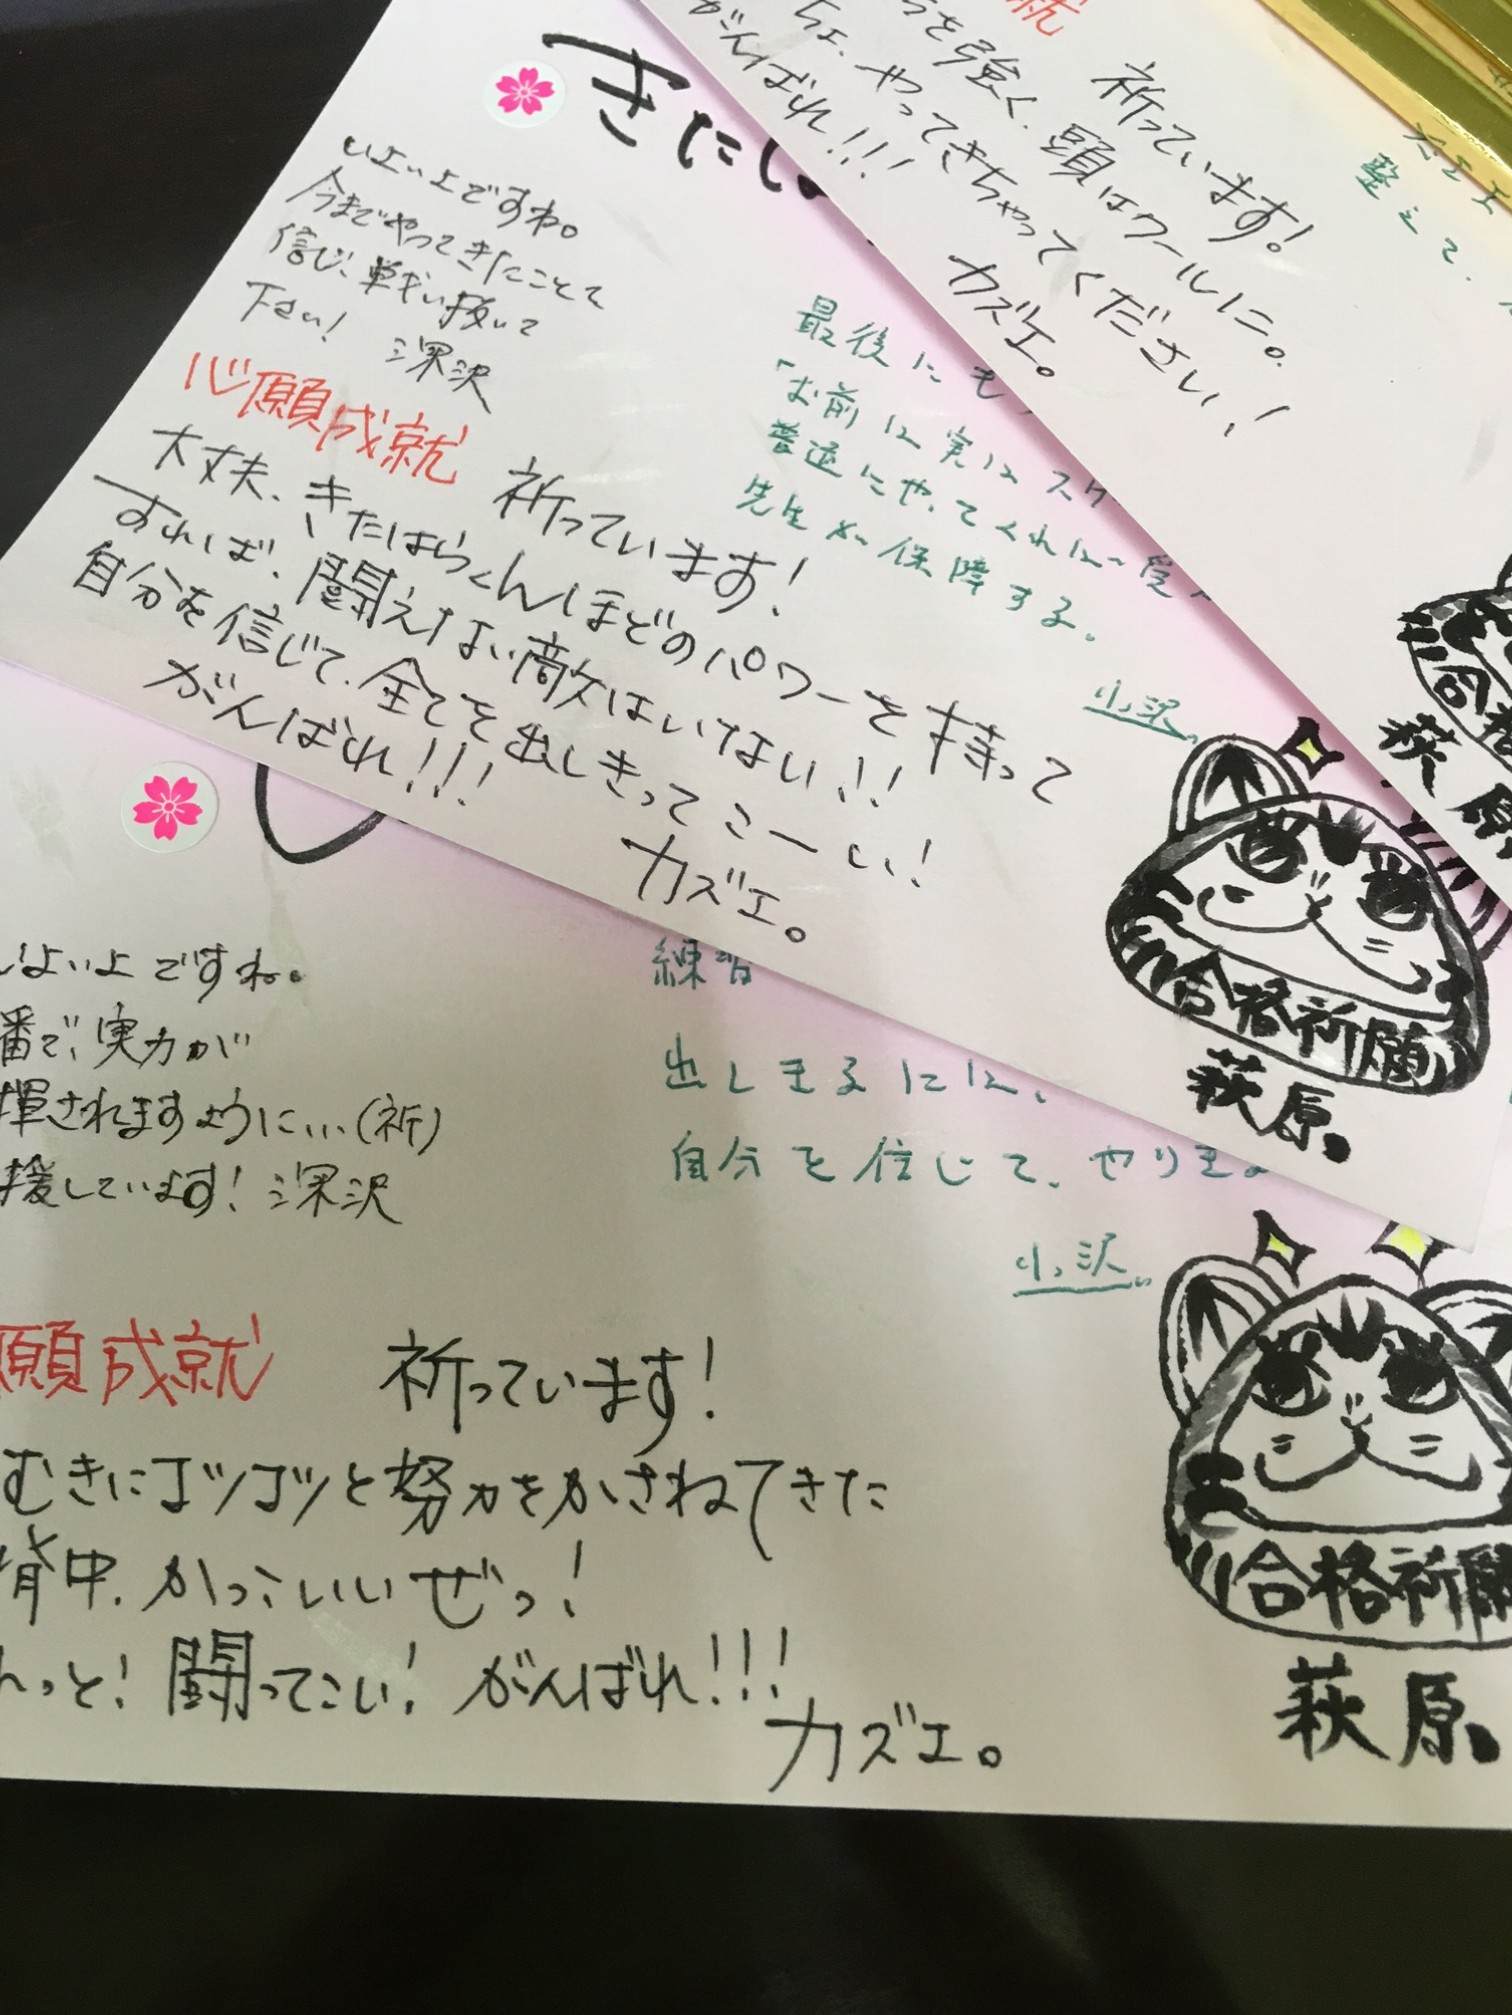 就
を強く、頭はクールに。
ちょ、やってきちゃってください!
がんばれ!!!
祈っています!
カズエ。
整えて、
合格
萩原
いよいよですね。
今までやってきたことを
信じ、戦い抜いて
下さい! 深沢
最後にも
「お前に実は
普通にやってくれば
先生が保障する。
小沢
心願成就
祈っています!
大丈夫、きたはらくんほどのパワーを持って
すれば、闘えない敵はいない!!
自分を信じて、全てを出しきってこーい!
がんばれ!!!
カズエ。
合格祈願
萩原。
いよいよですね。
番で、実力が
揮されますように…(祈)
援しています! 深沢
練習
出しきるには、
自分を信じて、やりき
小沢
願成就
祈っています!
むきにコツコツと努力をかさねてきた
背中、かっこいいぜっ!
んっと! 闘ってこい! がんばれ!!!
カズエ。
合格祈願
萩原。